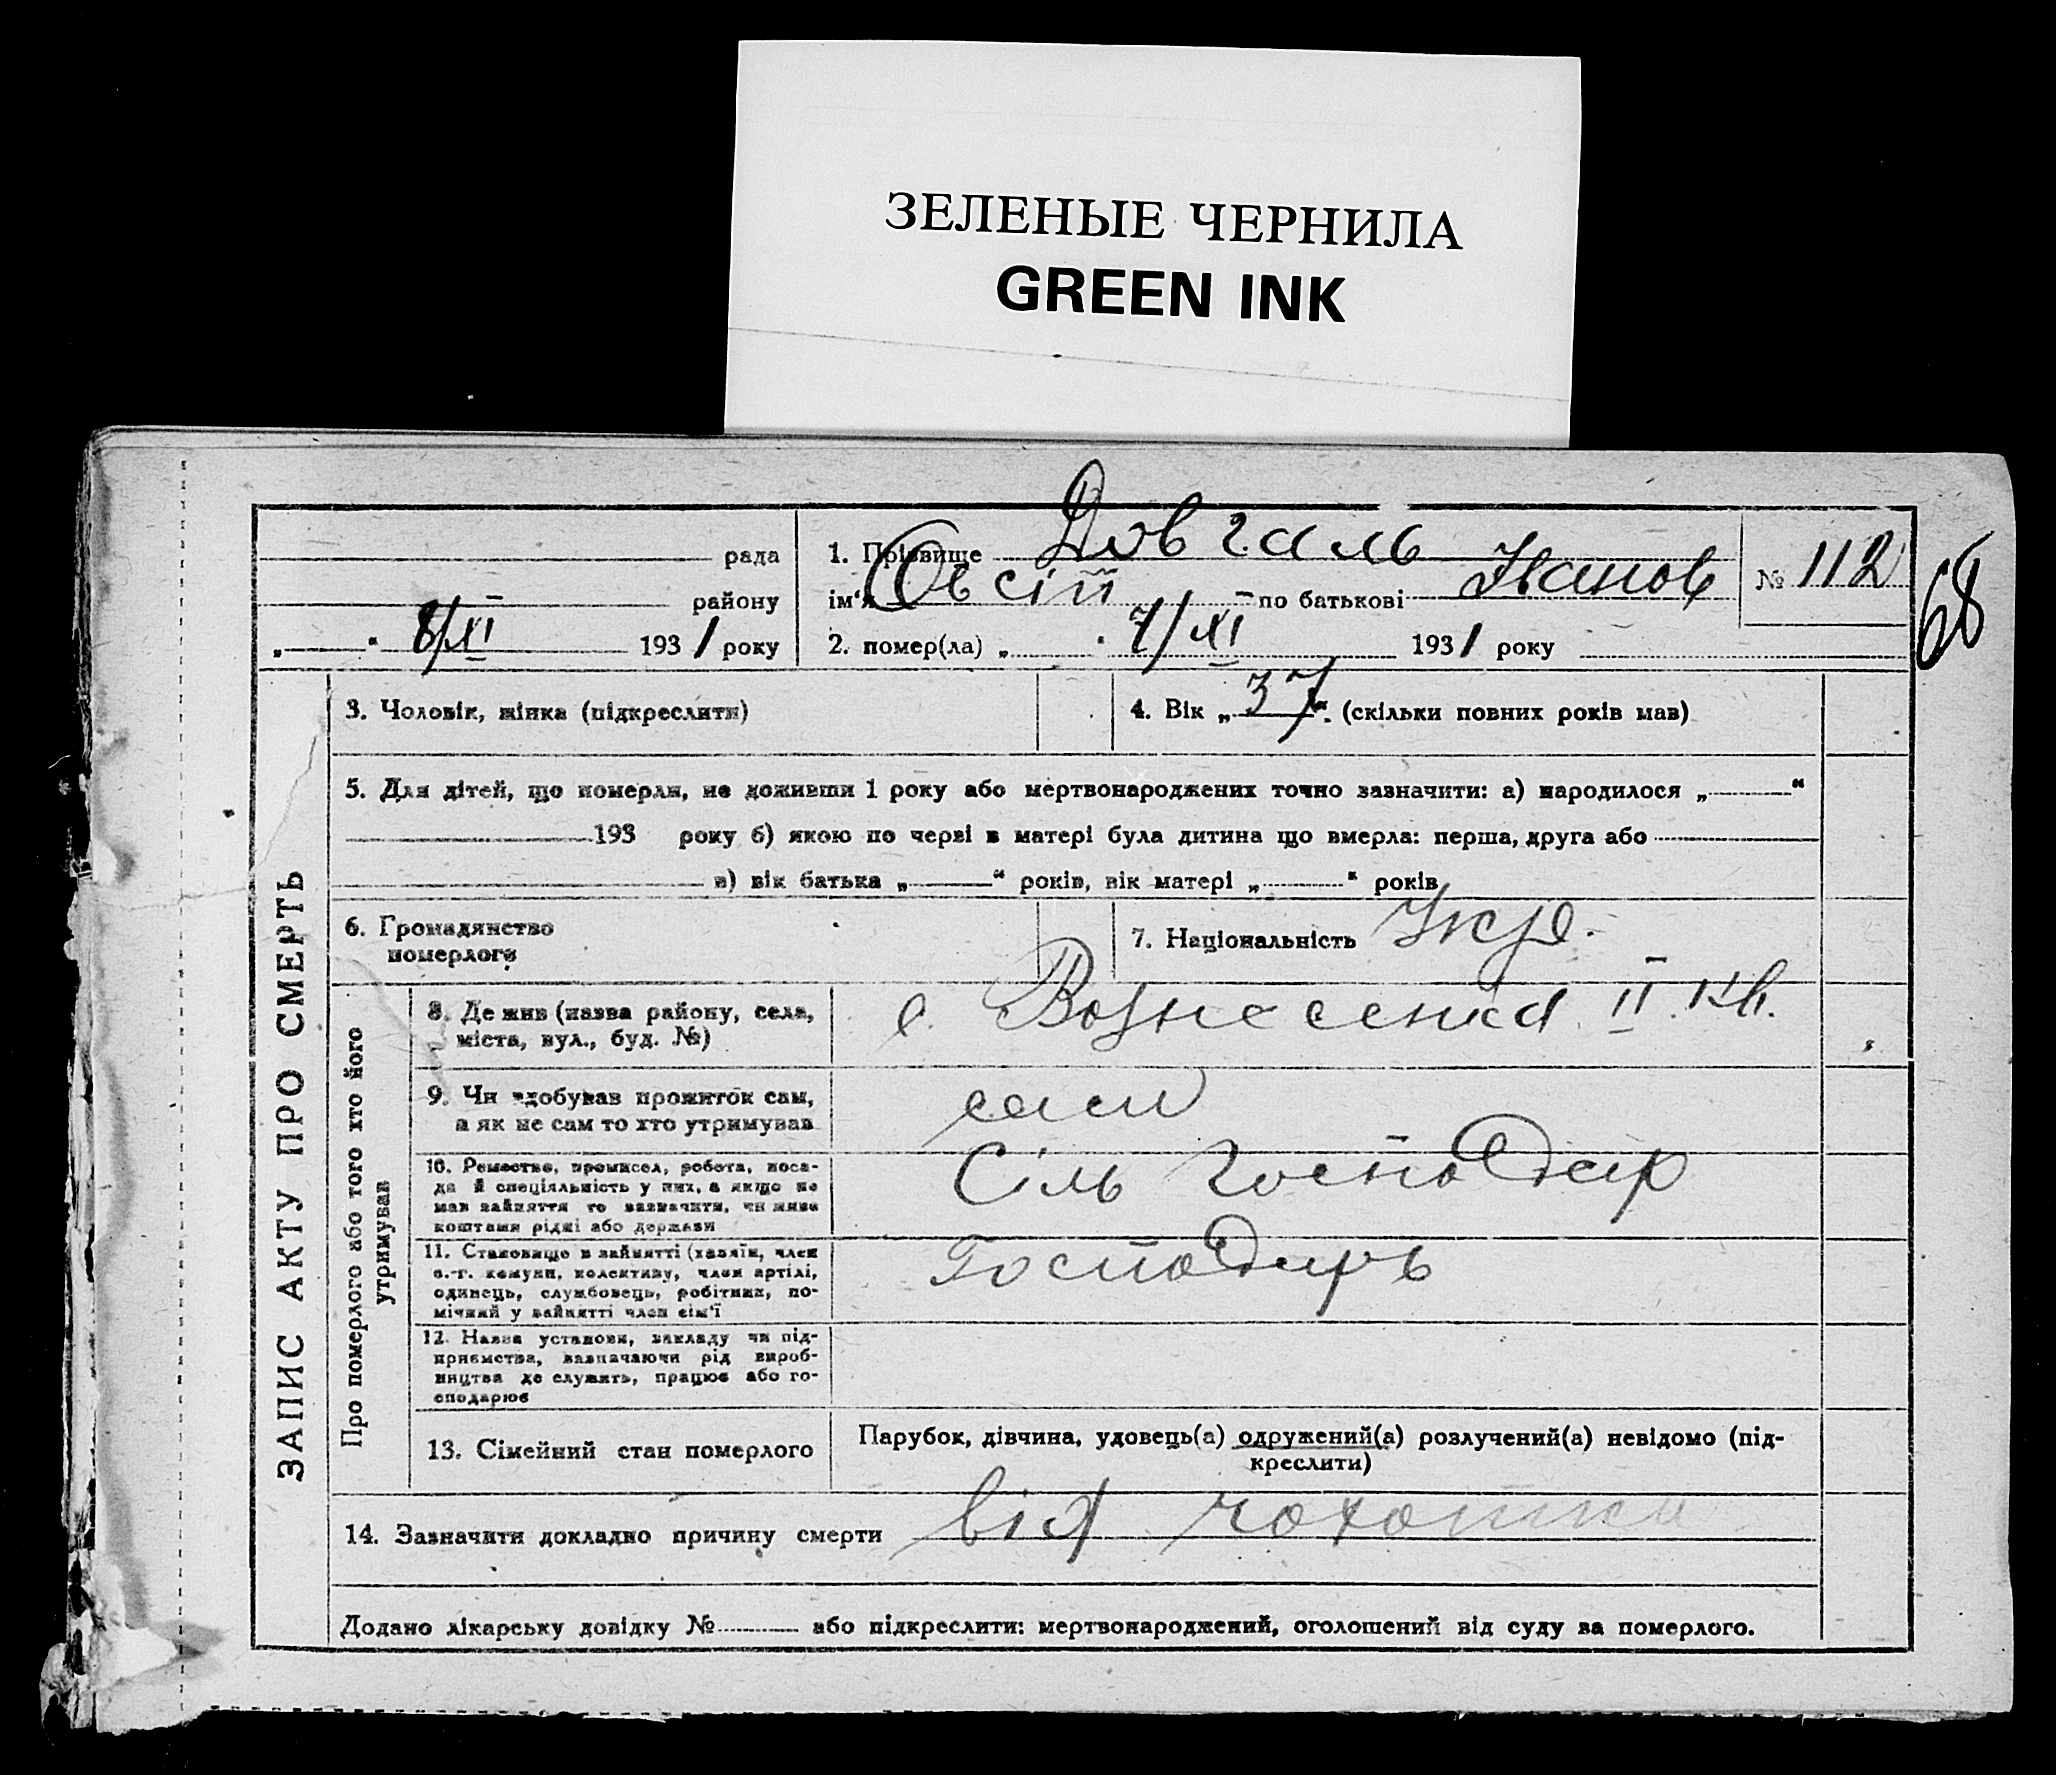 ЗЕЛЕНЫЕ ЧЕРНИЛА
GREEN INK
рада
району
„ “ 8/XI 1931 року
1. Прізвище Довгаль
ім'я Овсій по батькові Иванов
2. помер(ла) „ “ 7/XI 1931 року
№ 112
68
ЗАПИС АКТУ ПРО СМЕРТЬ
3. Чоловік, жінка (підкреслити)
4. Вік „37“. (скільки повних років мав)
5. Для дітей, що померли, не доживши 1 року або мертвонароджених точно зазначити: а) народилося „ “
193 року б) якою по черзі в матері була дитина що вмерла: перша, друга або
в) вік батька „ “ років, вік матері „ “ років
6. Громадянство
померлого
7. Національність Укр.
Про померлого або того хто його
утримував
8. Де жив (назва району, села,
міста, вул., буд. №)
с. Вознесенка II. кв.
9. Чи здобував прожиток сам,
а як не сам то хто утримував
сам
10. Ремество, промисел, робота, поса-
да й спеціяльність у них, а якщо не
мав зайняття то зазначити, чи жив
коштами рідні або держави
Сіль господар
11. Становище в зайнятті (хазяїн, член
с.-г. комуни, колективу, член артілі,
одинець, службовець, робітник, по-
мічний у зайнятті член сім'ї
Господарь
12. Назва установи, закладу чи під-
приємства, зазначаючи рід вироб-
ництва де служить, працює або го-
сподарює
13. Сімейний стан померлого
Парубок, дівчина, удовець(а) одружений(а) розлучений(а) невідомо (під-
креслити)
14. Зазначити докладно причину смерти від чохотки
Додано лікарську довідку № або підкреслити: мертвонароджений, оголошений від суду за померлого.